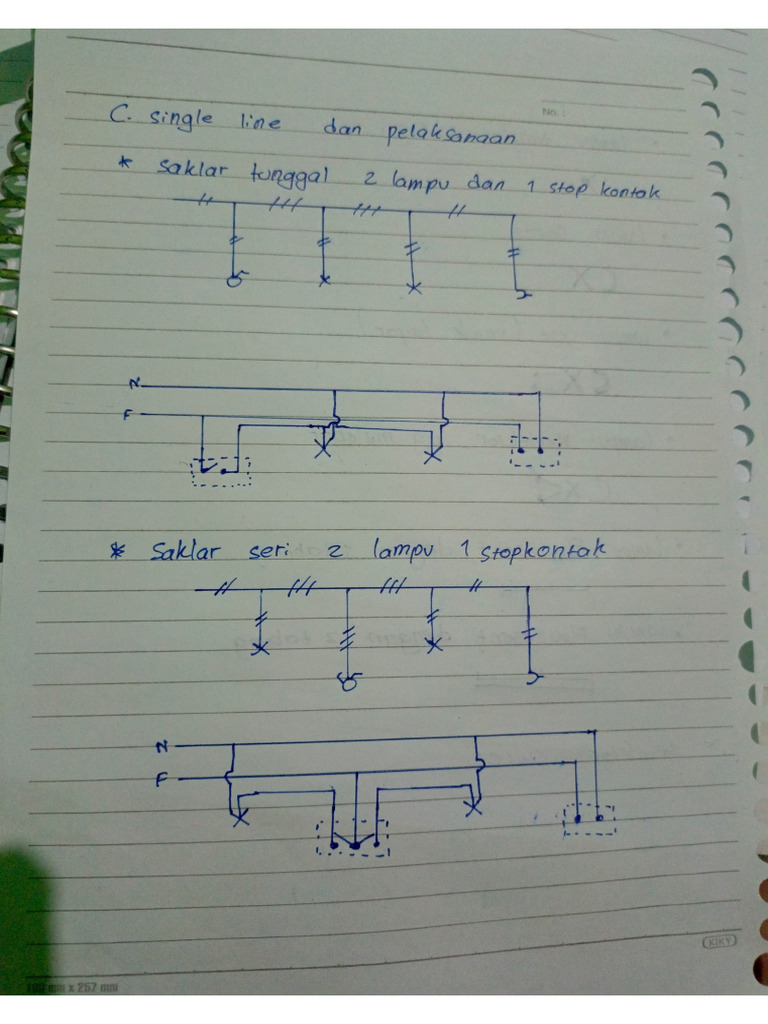 No.:
C. single line dan pelaksanaan
* Saklar tunggal 2 lampu dan 1 stop kontak
N
F
* Saklar seri 2 lampu 1 stopkontak
N
F
KIKY
mm x 257 mm